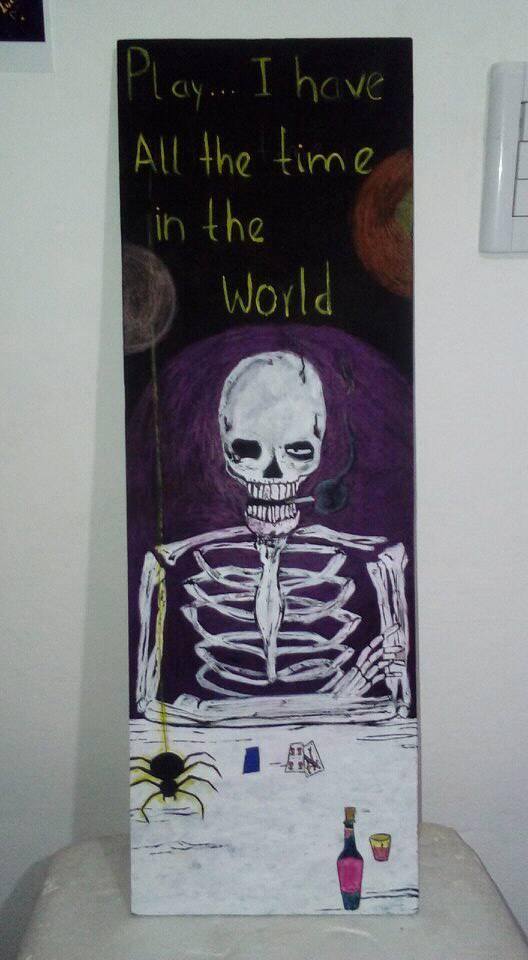 Play... I have
All the time
in the
World